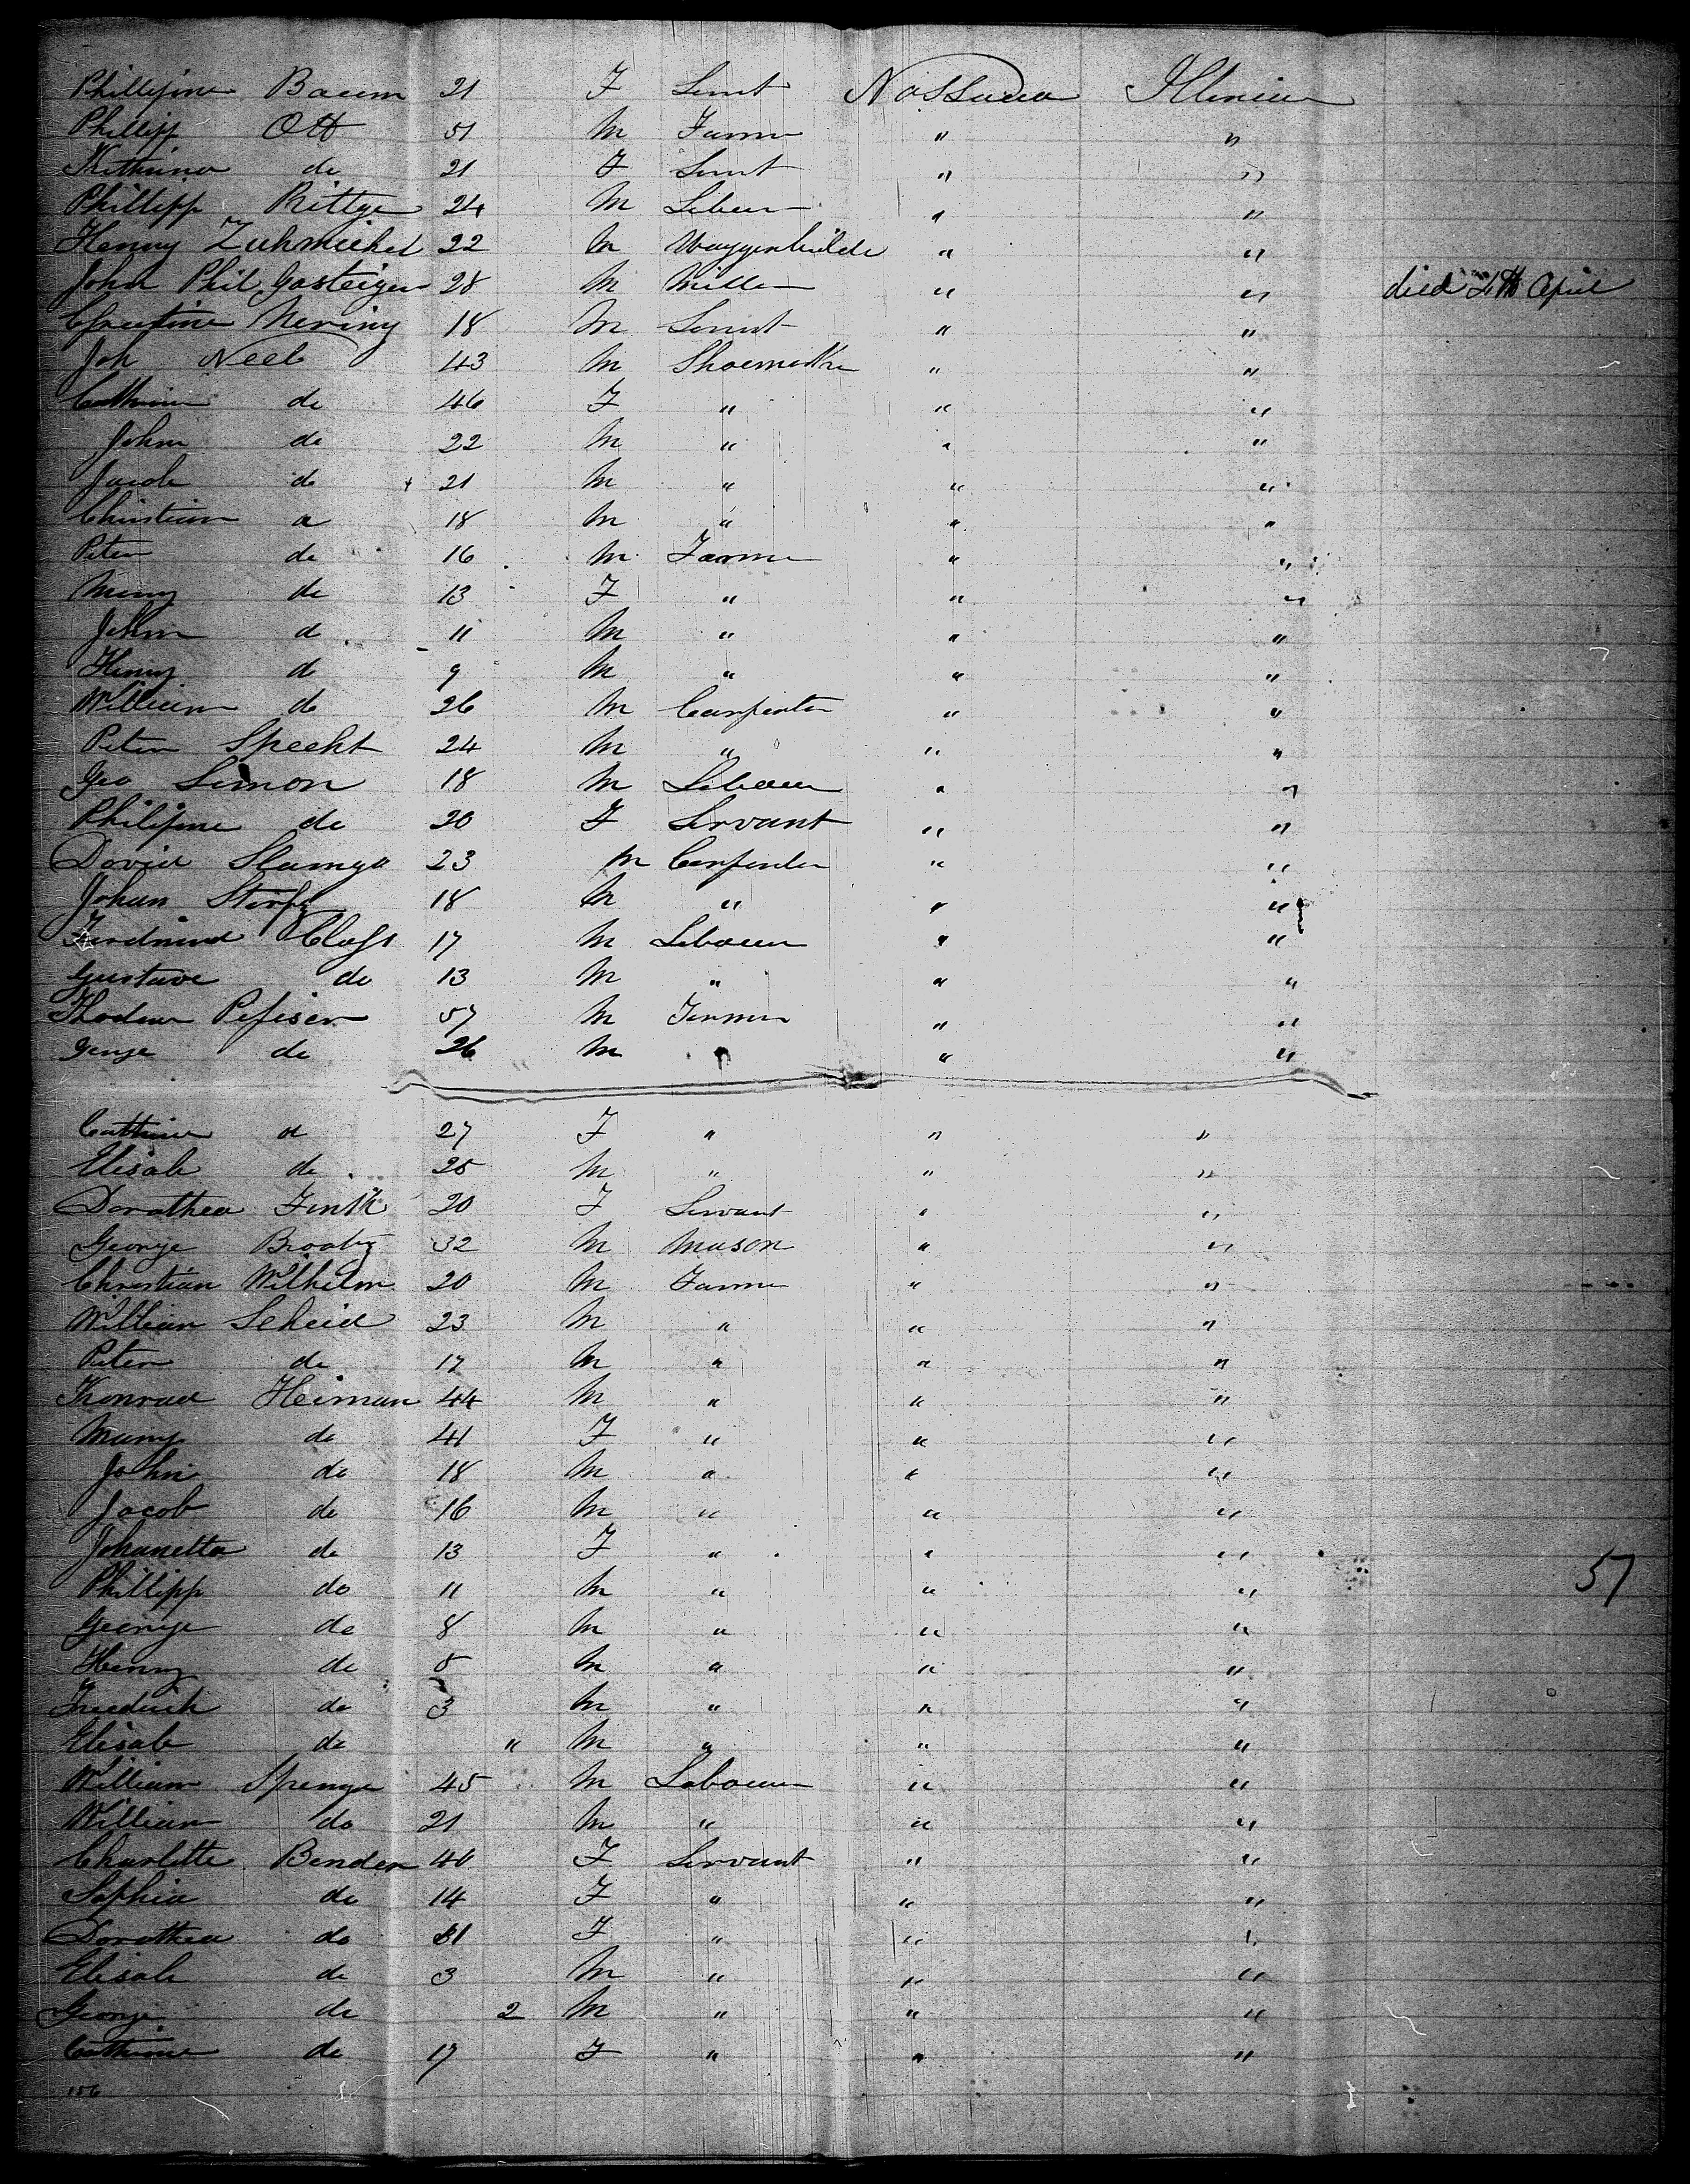 Phillipine Baum 21 F Servt Nassau Illinois
Phillipp Ott 51 M Farmer " "
Kathrina do 21 F Servt " "
Phillipp Rittger 24 M Labour " "
Henry Zuhmichel 22 M Waggenbuilder " "
John Phil Gasteiger 28 M Miller " " died 4th April
18 M Servt " "
Joh Neeb 43 M Shoemaker " "
Cathrine do 46 F " " "
John do 22 M " " "
Jacob do 21 M " " "
Christian do 18 M " " "
Peter do 16 M Farmer " "
Mary do 13 F " " "
John do 11 M " " "
Henry do 9 M " " "
William do 26 M Carpenter " "
Peter Specht 24 M " " "
Geo Simon 18 M Labour " "
Philipine do 20 F Servant " "
David 23 M Carpenter " "
Johan 18 M " " "
Ferdinand Class 17 M Labour " "
Gustave do 13 M " " "
57 M Farmer " "
George do 26 M " " "
Cathrine do 27 F " " "
Elisab do 25 M " " "
Dorathea Fink 20 F Servant " "
George 32 M Mason " "
Christian Wilhelm 20 M Farmer " "
William Scheid 23 M " " "
Peter do 17 M " " "
Konrad Heiman 44 M " " "
Mary do 41 F " " "
John do 18 M " " "
Jacob do 16 M " " "
Johanetta do 13 F " " "
Phillipp do 11 M " " " 57
George do 8 M " " "
Henry do 5 M " " "
Frederich do 3 M " " "
Elisab do " M " " "
William Sprenger 45 M Labour " "
William do 21 M " " "
Charlette Bender 40 F Servant " "
Sophia do 14 F " " "
Dorathea do F " " "
Elisab do 3 M " " "
George do 2 M " " "
Cathrine do 17 F " " "
156